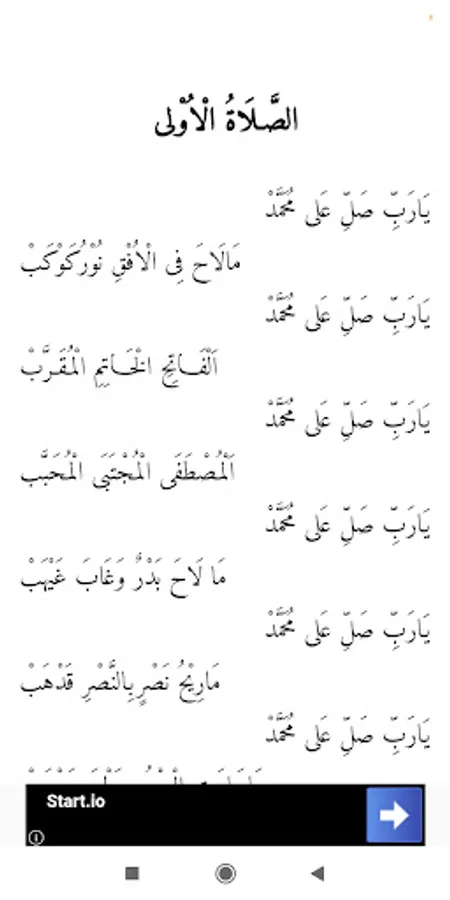 الصَّلَاةُ الْاُوْلى
يَارَبِّ صَلِّ عَلى مُحَمَّدْ
مَالَاحَ فِى الْاُفْقِ نُوْرُكَوْكَبْ
يَارَبِّ صَلِّ عَلى مُحَمَّدْ
اَلْفَـاتِحِ الْخَـاتِمِ الْمُقَـرَّبْ
يَارَبِّ صَلِّ عَلى مُحَمَّدْ
اَلْمُصْطَفَى الْمُجْتَبَى الْمُحَبَّب
يَارَبِّ صَلِّ عَلى مُحَمَّدْ
مَا لَاحَ بَدْرٌ وَغَابَ غَيْهَبْ
يَارَبِّ صَلِّ عَلى مُحَمَّدْ
مَارِيْحُ نَصْرٍبِالنَّصْرِ قَدْهَبْ
يَارَبِّ صَلِّ عَلى مُحَمَّدْ
Start.io